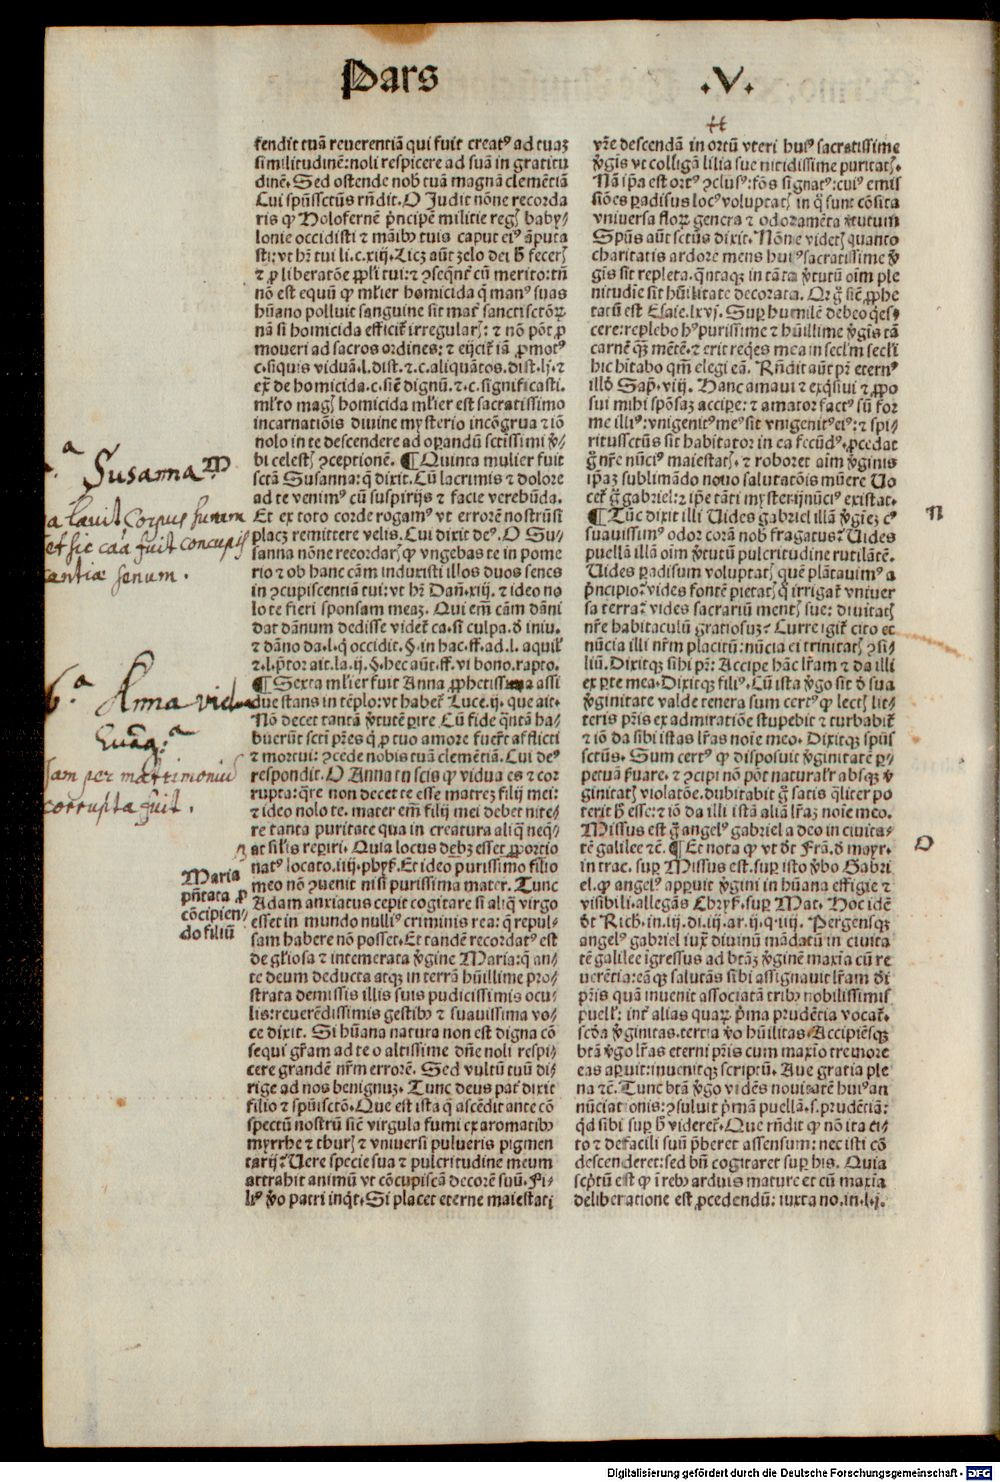 Pars
.V.
fendit tuã reuerentiã qui fuit creatꝰ ad tuaz
similitudinẽ: noli respicere ad suã in gratitu
dinẽ. Sed ostende nob tuã magnã clemẽtiã
Cui spũssctũs rñdit. O Judit nõne recorda
ris ꝙ Holofernẽ p̃ncipẽ militie regꝭ baby⸗
lonie occidisti ⁊ mãibꝰ tuis caput eiꝰ ãputa
sti: vt hr̃ tui li. c. xiij. Licz aũt zelo dei h̃ fecerꝭ
⁊ ꝓ liberatõe ꝓpl̃i tui: ⁊ ꝯseq̃nt̃ cũ merito: tñ
nõ est equũ ꝙ ml̃ier homicida q̃ manꝰ suas
hũano polluit sanguine sit mat̃ sancti sctõꝝ
nã si homicida efficit̃ irregularꝭ: ⁊ nõ põt ꝓ
moueri ad sacros ordines: ⁊ eijcit̃ iã ꝓmotꝰ
c. siquis viduã. l. dist. ⁊. c. aliquãtos. dist. lj. ⁊
ex̃ de homicida. c. sic̃ dignũ. ⁊. c. significasti.
ml̃to magꝭ homicida ml̃ier est sacratissimo
incarnatiõis diuine mysterio incõgrua ⁊ iõ
nolo in te descendere ad oꝑandũ sctissimi v̓⸗
bi celestꝭ ꝯceptionẽ. ¶ Quinta mulier fuit
sctã Susanna: q̃ dixit. Cũ lacrimis ⁊ dolore
ad te venimꝰ cũ suspirijs ⁊ facie verebũda.
Et ex toto corde rogamꝰ vt errorẽ nostrũ si
placz remittere velis. Cui dixit deꝰ. O Su⸗
sanna nõne recordarꝭ ꝙ vngebas te in pome
rio ⁊ ob hanc cãm induxisti illos duos senes
in ꝯcupiscentiã tui: vt hr̃ Dañ. xiij. ⁊ ideo no
lo te fieri sponsam meaz. Qui em̃ cãm dãni
dat dãnum dedisse videt̃ ca. si culpa. d̓ iniu.
⁊ dãno da. l. q̃ occidit. §. in hac. ff. ad. l. aquil̃
⁊. l. p̃tor ait. la. ij. §. hec aũt. ff. vi bono. rapto.
¶ Sexta ml̃ier fuit Anna ꝓphetissa assi
due stans in tẽplo: vt habet̃ Luce. ij. que ait.
Nõ decet tantã v̓tutẽ ꝑire Cũ fide q̃ntã ha⸗
buerũt scti pr̃es q̃ ꝓ tuo amore fuer̃t afflicti
⁊ mortui: ꝯcede nobis tuã clemẽtiã. Cui deꝰ
respondit. O Anna tu scis ꝙ vidua es ⁊ cor
rupta: q̃re non decet te esse matrez filij mei:
⁊ ideo nolo te. mater em̃ filij mei debet nite⸗
re tanta puritate qua in creatura aliq̃ neq̃⸗
at sil̃is reꝑiri. Quia locus debz esset ꝓportio
natꝰ locato. iiij. phyẽ. Et ideo purissimo filio
meo nõ ꝯuenit nisi purissima mater. Tunc
Adam anxiatus cepit cogitare si aliq̃ virgo
esset in mundo nulliꝰ criminis rea: q̃ repul⸗
sam habere nõ posset. Et tandẽ recordatꝰ est
de gl̃iosa ⁊ intemerata v̓gine Maria: q̃ an⸗
te deum deducta atqz in terrã hũillime pro⸗
strata demissis illis suis pudicissimis ocu⸗
lis: reuerẽdissimis gestibꝰ ⁊ suauissima vo⸗
ce dixit. Si hũana natura non est digna cõ
sequi gr̃am ad te o altissime dñe noli respi⸗
cere grandẽ nr̃m errorẽ. Sed vultũ tuũ di⸗
rige ad nos benignuz. Tunc deus pat̃ dixit
filio ⁊ spũisctõ. Que est ista q̃ ascẽdit ante cõ
spectũ nostrũ sic̃ virgula fumi ex aromatibꝰ
myrrhe ⁊ thurꝭ ⁊ vniuersi pulueris pigmen
tarij? Vere specie sua ⁊ pulcritudine meum
attrahit animũ vt cõcupiscã decorẽ suũ. Fi⸗
liꝰ v̓o patri inq̃t. Si placet eterne maiestati
vr̃e descendã in ortũ vteri huiꝰ sacratissime
v̓gis vt colligã lilia sue nitidissime puritatꝭ.
Nã ip̃a est ortꝰ ꝯclusꝰ: fõs signatꝰ: cuiꝰ emis
siões ꝑadisus locꝰ voluptatꝭ in q̃ sunt cõsita
vniuersa floꝝ genera ⁊ odoramẽta v̓tutum
Spũs aũt sctũs dixit. Nõne videtꝭ quanto
charitatis ardore mens huiꝰ sacratissime v̓
gis sit repleta. q̃ntaqz in tãta v̓tutũ oĩm ple
nitudie sit hũilitate decorata. Qr g̃ sic̃ ꝓphe
tatũ est Esaie. lxvj. Suꝑ humilẽ debeo q̃es⸗
cere: replebo hꝰ purissime ⁊ hũillime v̓gis tã
carnẽ q̃z mẽtẽ. ⁊ erit req̃es mea in secl̃m secl̃i
hic h̃itabo qm̃ elegi eã. Rñdit aũt pr̃ eternꝰ
illd̓ Sap̃. viij. Hanc amaui ⁊ exq̃siui ⁊ ꝓpo
sui mihi spõsaz acciꝑe: ⁊ amator factꝰ sũ for
me illiꝰ: vnigenitꝰ meꝰ sit vnigenitꝰ eiꝰ: ⁊ spi⸗
ritussctũs sit habitator in ea fecũdꝰ. ꝓcedat
g̃ nr̃e nũciꝰ maiestatꝭ. ⁊ roboret aĩm v̓ginis
ip̃az sublimãdo nouo salutatõis mũere Uo
cet̃ g̃ gabriel: ⁊ ip̃e tãti mysterij nũciꝰ existat.
¶ Tũc dixit illi Uides gabriel illã v̓giez cꝰ
suauissimꝰ odor corã nob fragatus? Uides
puellã illã oĩm v̓tutũ pulcritudine rutilãtẽ.
Uides ꝑadisum voluptatꝭ quẽ plãtauimꝰ a
p̃ncipio? vides fontẽ pietatꝭ q̃ irrigat̃ vniuer
sa terra? vides sacrariũ mentꝭ sue: diuitatꝭ
nr̃e habitaculũ gratiosuz? Curre igit̃ cito et
nũcia illi nr̃m placitũ: nũcia ei trinitatꝭ ꝯsi⸗
liũ. Dixitqz sibi pr̃: Accipe hãc lr̃am ⁊ da illi
ex ꝑte mea. Dixitqz filiꝰ. Cũ ista v̓go sit d̓ sua
v̓ginitate valde tenera sum certꝰ ꝙ lectꝭ lit⸗
teris pr̃is ex admiratiõe stupebit ⁊ turbabit̃
⁊ iõ da sibi istas lr̃as noĩe meo. Dixitqz spũs
sctũs. Sum certꝰ ꝙ disposuit v̓ginitatẽ ꝑ⸗
petuã f̃uare. ⁊ ꝯcipi nõ põt naturalr̃ absqz v̓
ginitatꝭ violatõe. dubitabit g̃ satis q̃liter po
terit h̃ esse: ⁊ iõ da illi istã aliã lr̃az noĩe meo.
Missus est g̃ angelꝰ gabriel a deo in ciuita⸗
tẽ galilee ⁊c̃. ¶ Et nota ꝙ vt d̓t Frã. d̓ mayr̃.
in trac. suꝑ Missus est. suꝑ isto v̓bo Gabri
el. ꝙ angelꝰ apꝑuit v̓gini in hũana effigie ⁊
visibili. allegãs Chrys̃. suꝑ Mat. Hoc idẽ
d̓t Rich. in. iij. di. iij. ar. ij. q. iiij. Pergensqz
angelꝰ gabriel iux̃ diuinũ mãdatũ in ciuita
tẽ galilee ĩgressus ad btãz v̓ginẽ maxĩa cũ re
uerẽtia: eãqz salutãs sibi assignauit lr̃am dĩ
pr̃is quã inuenit associatã tribꝰ nobilissimis
puellꝭ: int̃ alias quaꝝ p̃ma prudẽtia vocat̃.
scd̃a v̓ginitas. tertia v̓o hũilitas. Accipiẽsqz
btã v̓go lr̃as eterni pr̃is cum maxĩo tremore
eas aꝑuit: inuenitqz scriptũ. Aue gratia ple
na ⁊c̃. Tunc btã v̓go vidẽs nouitatẽ huiꝰ an
nũciationis: ꝯsuluit p̃mã puellã. s. prudẽtiã:
qd̃ sibi suꝑ h̃ videret̃. Que rñdit ꝙ nõ ita ci⸗
to ⁊ defacili suũ p̃beret assensum: nec isti cõ
descenderet: sed bñ cogitaret suꝑ his. Quia
sc̃ptũ est ꝙ ĩ rebꝰ arduis mature et cũ maxĩa
deliberatione est ꝓcedendũ: iuxta no. in. l. j.
Susanna
lauit corpus suum
et sic cãa fuit concupis
centiæ senum.
6.ª Anna vidua
Euãg.ª
Jam per matrimoniũ
corrupta fuit.
Maria
pñtata ꝓ
cõcipien⸗
do filiũ
N
O
Digitalisierung gefördert durch die Deutsche Forschungsgemeinschaft - DFG